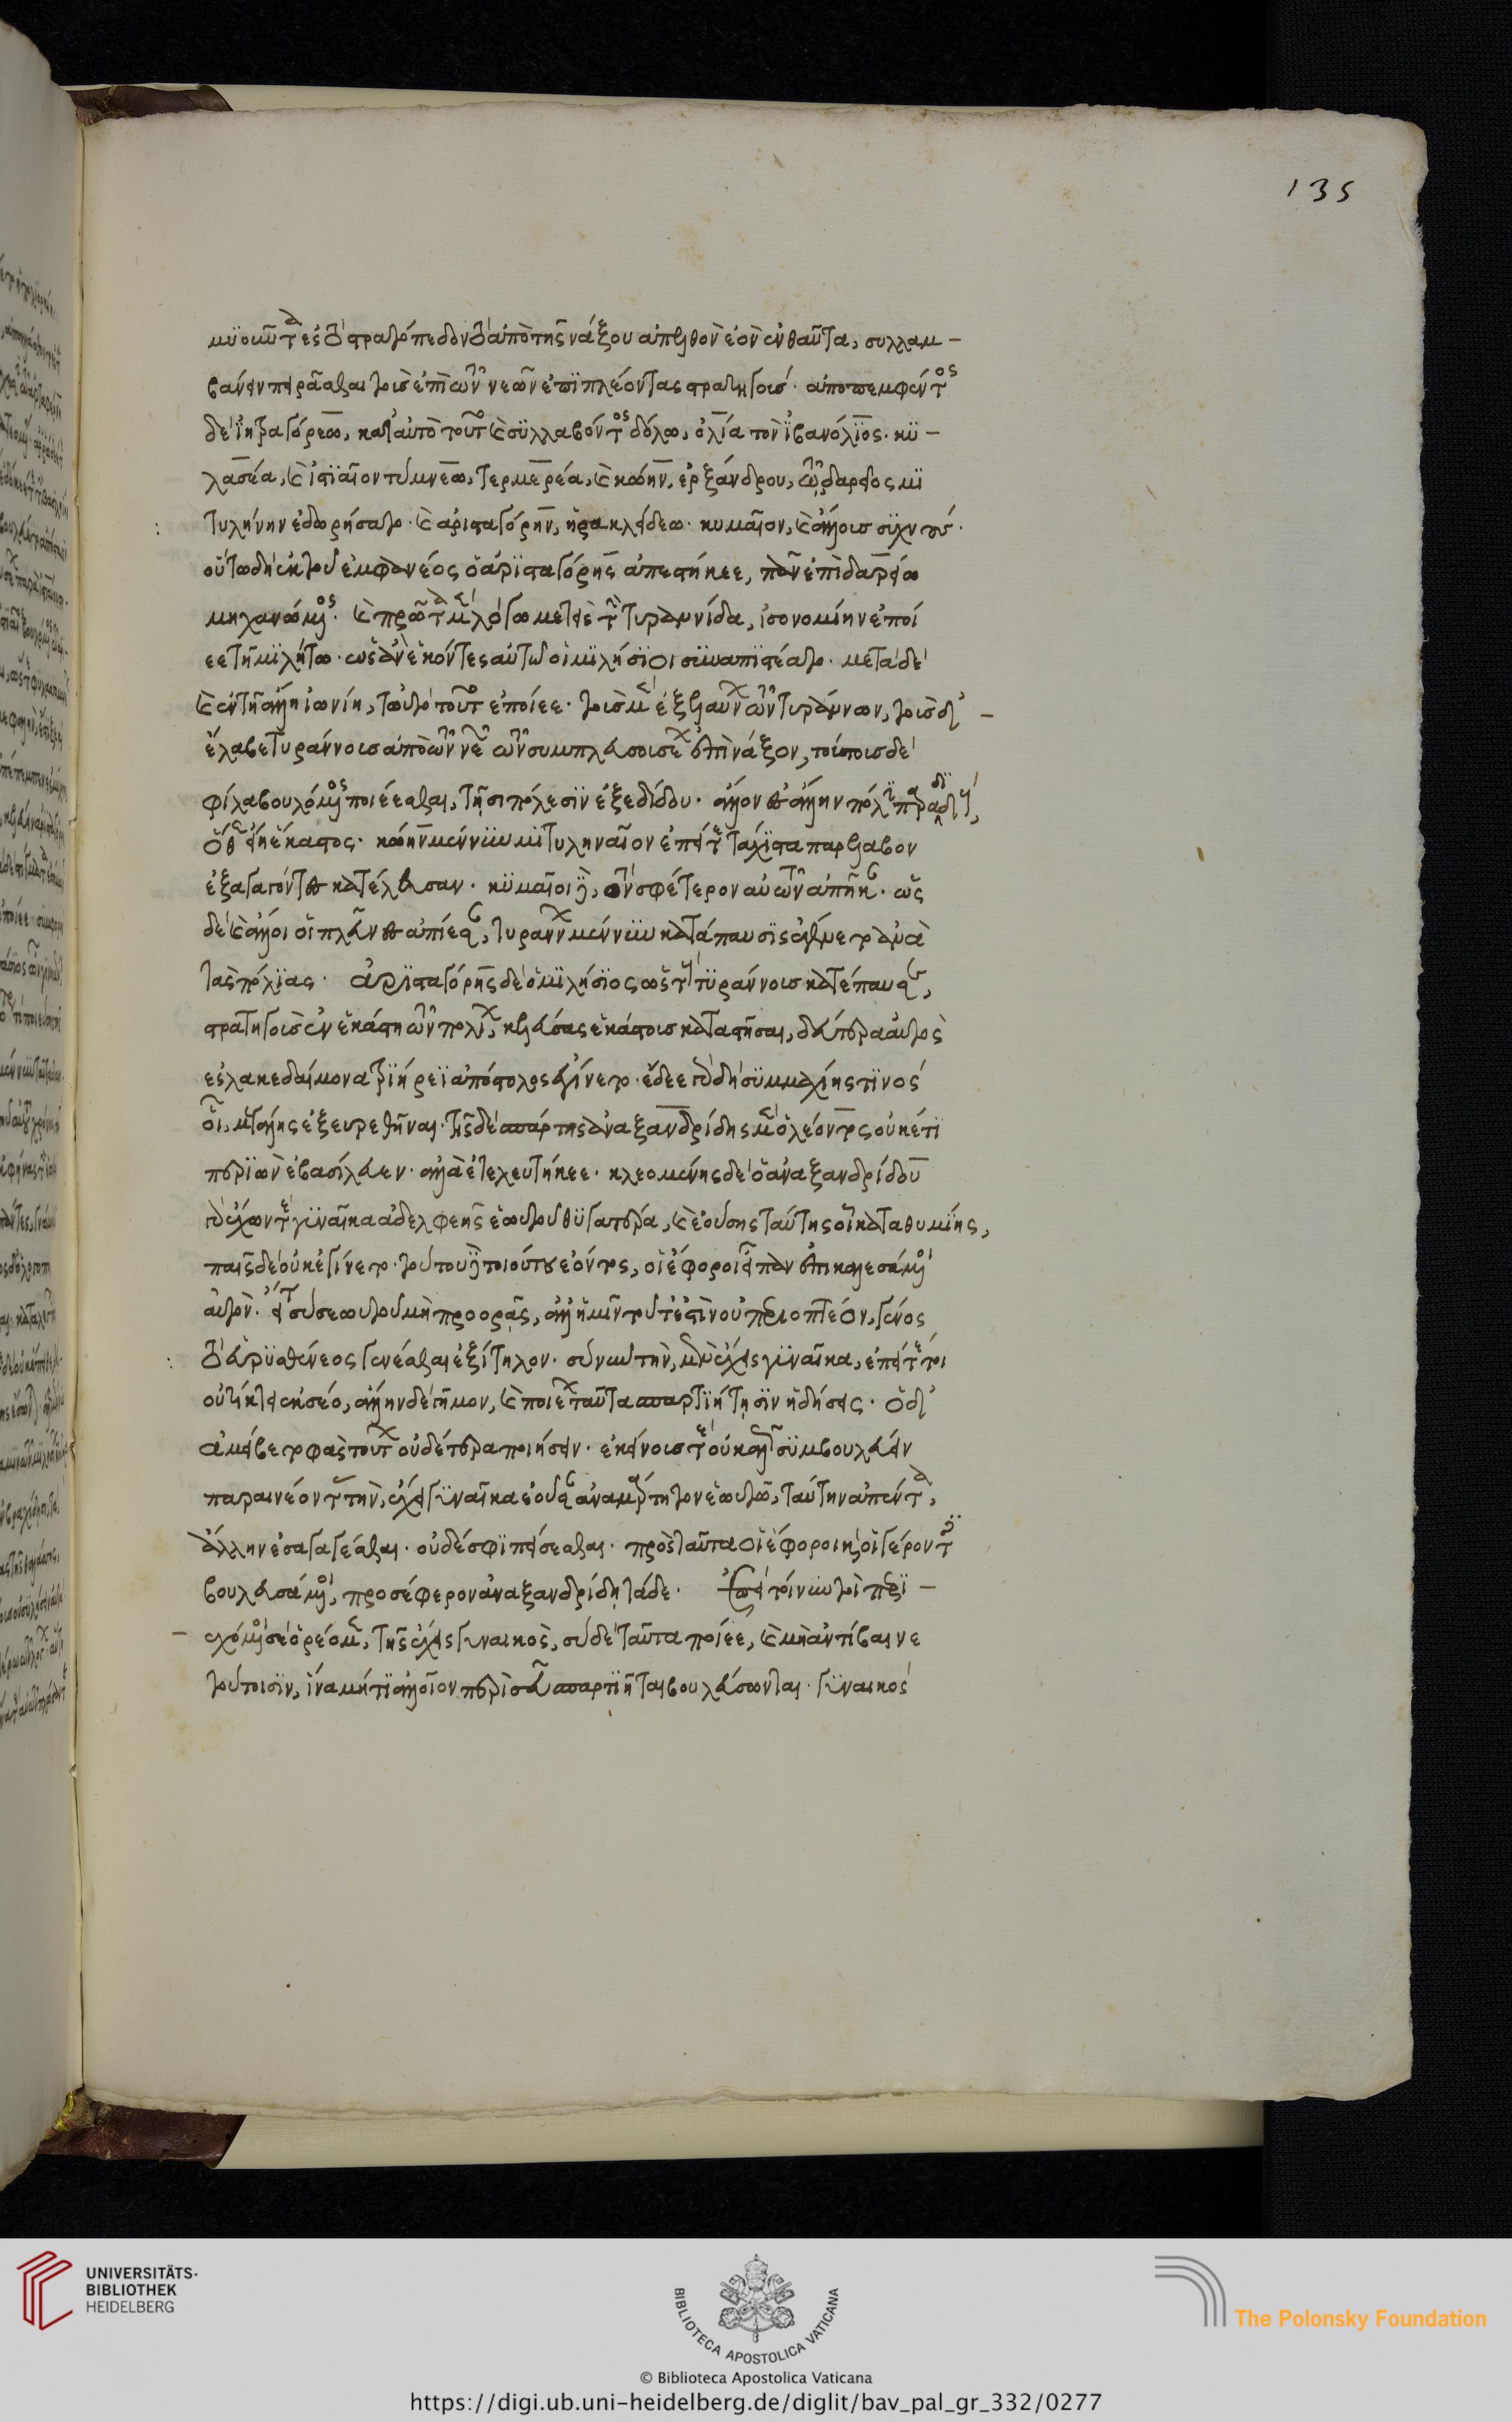 μυοῦντα ἐς τὸ στρατόπεδον τὸ ἀπὸ τῆς νάξου ἀπελθὸν ἐὸν ἐνθαῦτα, συλλαμ-
βάνειν πειρᾶσθαι τοὺς ἐπὶ τῶν νεῶν ἐπιπλέοντας στρατηγούς. ἀποπεμφθέντος
δὲ ἰητραγόρεω, κατ' αὐτὸ τοῦτο καὶ συλλαβόντος δόλω, ὀλίατον ἰβανόλιος. μυ-
λασέα, καὶ ἱστιαῖον τύμνεω, τερμερέα, καὶ κώην, ἐρξάνδρου, τῷ δαρεῖος μι
τυλήνην ἐδωρήσατο. καὶ ἀρισταγόρην, ἡρακλείδεω. κυμαῖον, καὶ ἄλλους συχνούς.
οὕτω δὴ ἐκ τοῦ ἐμφανέος ὁ ἀρισταγόρης ἀπεστήκεε, πᾶν ἐπὶ δαρείω
μηχανώμενος. καὶ πρῶτα μὲν λόγω μετεὶς τὴν τυραννίδα, ἰσονομίην ἐποί
εε τῇ μιλήτω. ὡς ἂν ἑκόντες αὐτῷ οἱ μιλήσιοι συναπιστέατο. μετὰ δὲ
καὶ ἐν τῇ ἄλλη ἰωνίη, τὠυτὸ τοῦτο ἐποίεε. τοὺς μὲν ἐξελαύνων τῶν τυράννων, τοὺς δ' -
ἔλαβε τυράννους ἀπὸ τῶν νεῶν τῶν συμπλευσουσέων ἐπὶ νάξον, τούτους δὲ
φίλα βουλόμενος ποιέεσθαι, τῇσι πόλεσιν ἐξεδίδου. ἄλλον ἐς ἄλλην πόλιν παραδιδούς,
ὅθεν εἴη ἕκαστος. κώην μέν νυν μιτυληναῖον ἐπείτε τάχιστα παρέλαβον
ἐξαγαγόντες κατέλευσαν. κυμαῖοι δὲ, τὸν σφέτερον αὐτῶν ἀπῆκαν. ὣς
δὲ καὶ ἄλλοι οἱ πλεῦνες ἀπίεσαν, τυράννων μέν νυν κατάπαυσις ἐγίνετο ἀνὰ
τὰς πόλιας. ἀρισταγόρης δὲ ὁ μιλήσιος ὡς τοὺς τυράννους κατέπαυσεν,
στρατηγοὺς ἐν ἑκάστη τῶν πολίων, κελεύσας ἑκάστους καταστῆσαι, δεύτερα αὐτὸς
ἐς λακεδαίμονα τριήρει ἀπόστολος ἐγίνετο. ἔδεε γὰρ δὴ συμμαχίης τινός
οἱ, μεγάλης ἐξευρεθῆναι. τῆς δὲ σπάρτης ἀναξανδρίδης μὲν ὁ λέοντος οὐκέτι
περιὼν ἐβασίλευεν. ἀλλὰ ἐτελευτήκεε. κλεομένης δὲ ὁ ἀναξανδρίδου
γὰρ ἔχοντι γυναῖκα ἀδελφεῆς ἑωυτοῦ θυγατέρα, καὶ ἐούσης ταύτης οἱ καταθυμίης,
παῖς δὲ οὐκ ἐγίνετο. τούτου δὲ τοιούτου ἐόντος, οἱ ἔφοροι εἶπαν ἐπικαλεσάμενοι
αὐτόν. εἴ τοι σὺ σεωυτοῦ μὴ προορᾷς, ἀλλ' ἡμῖν τοῦτ' ἐστὶν οὐ περιοπτέον, γένος
τὸ εὐρυσθένεος γενέσθαι ἐξίτηλον. σύ νυν τὴν, μὲν ἔχεις γυναῖκα, ἐπείτε τοι
οὐ τίκτει ἔκσεο, ἄλλην δὲ γῆμον, καὶ ποιέων ταῦτα σπαρτιήτησιν ἡδήσεις. ὁ δ'
ἀμείβετο φὰς τούτων οὐδέτερα ποιήσειν. ἐκείνους τε οὐ καλῶς συμβουλεύειν
παραινέοντας τὴν, ἔχει γυναῖκα ἐοῦσαν ἀναμάρτητον ἑωυτῷ, ταύτην ἀπέντα,
ἄλλην ἐσαγαγέσθαι. οὐδέ σφι πείσεσθαι. πρὸς ταῦτα οἱ ἔφοροι καὶ οἱ γέροντες
βουλευσάμενοι, προσέφερον ἀναξανδρίδη τάδε. ἐπεὶ τοίνυν τοι περι-
εχόμενόν σε ὁρέομεν, τῆς ἔχεις γυναικὸς, σὺ δὲ ταῦτα ποίεε, καὶ μὴ ἀντίβαινε
τούτοισιν, ἵνα μή τι ἀλλοῖον περὶ σεῦ σπαρτιῆται βουλεύσωνται. γυναικὸς
135
UNIVERSITÄTS-
BIBLIOTHEK
HEIDELBERG
BIBLIOTECA APOSTOLICA VATICANA
The Polonsky Foundation
© Biblioteca Apostolica Vaticana
https://digi.ub.uni-heidelberg.de/diglit/bav_pal_gr_332/0277